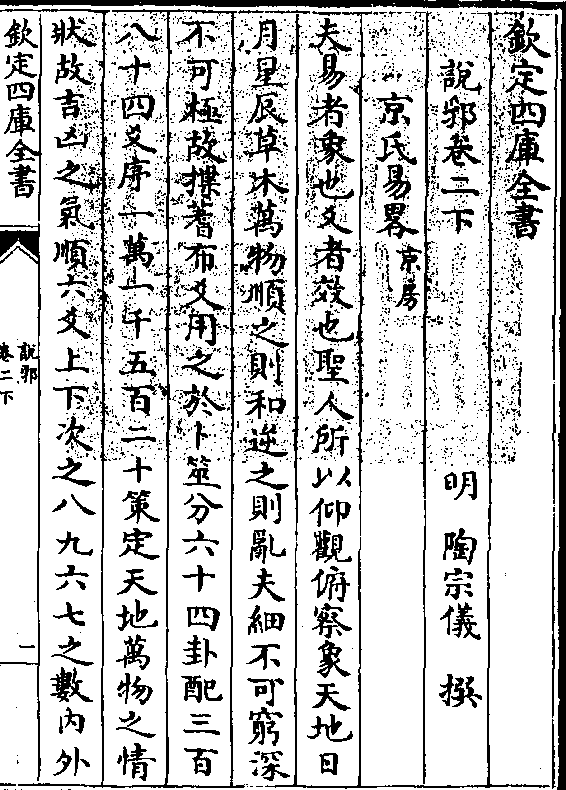 欽定四庫全書
說郛卷二下
明 陶宗儀 撰
京氏易畧 京房
夫易者象也爻者效也聖人所以仰觀俯察象天地日
月星辰草木萬物順之則和逆之則亂夫細不可窮深
不可極故揲蓍布爻用之於卜筮分六十四卦配三百
八十四爻序一萬一千五百二十策定天地萬物之情
狀故吉凶之氣順六爻上下次之八九六七之數內外
欽定四庫全書
說郛
卷二下
一